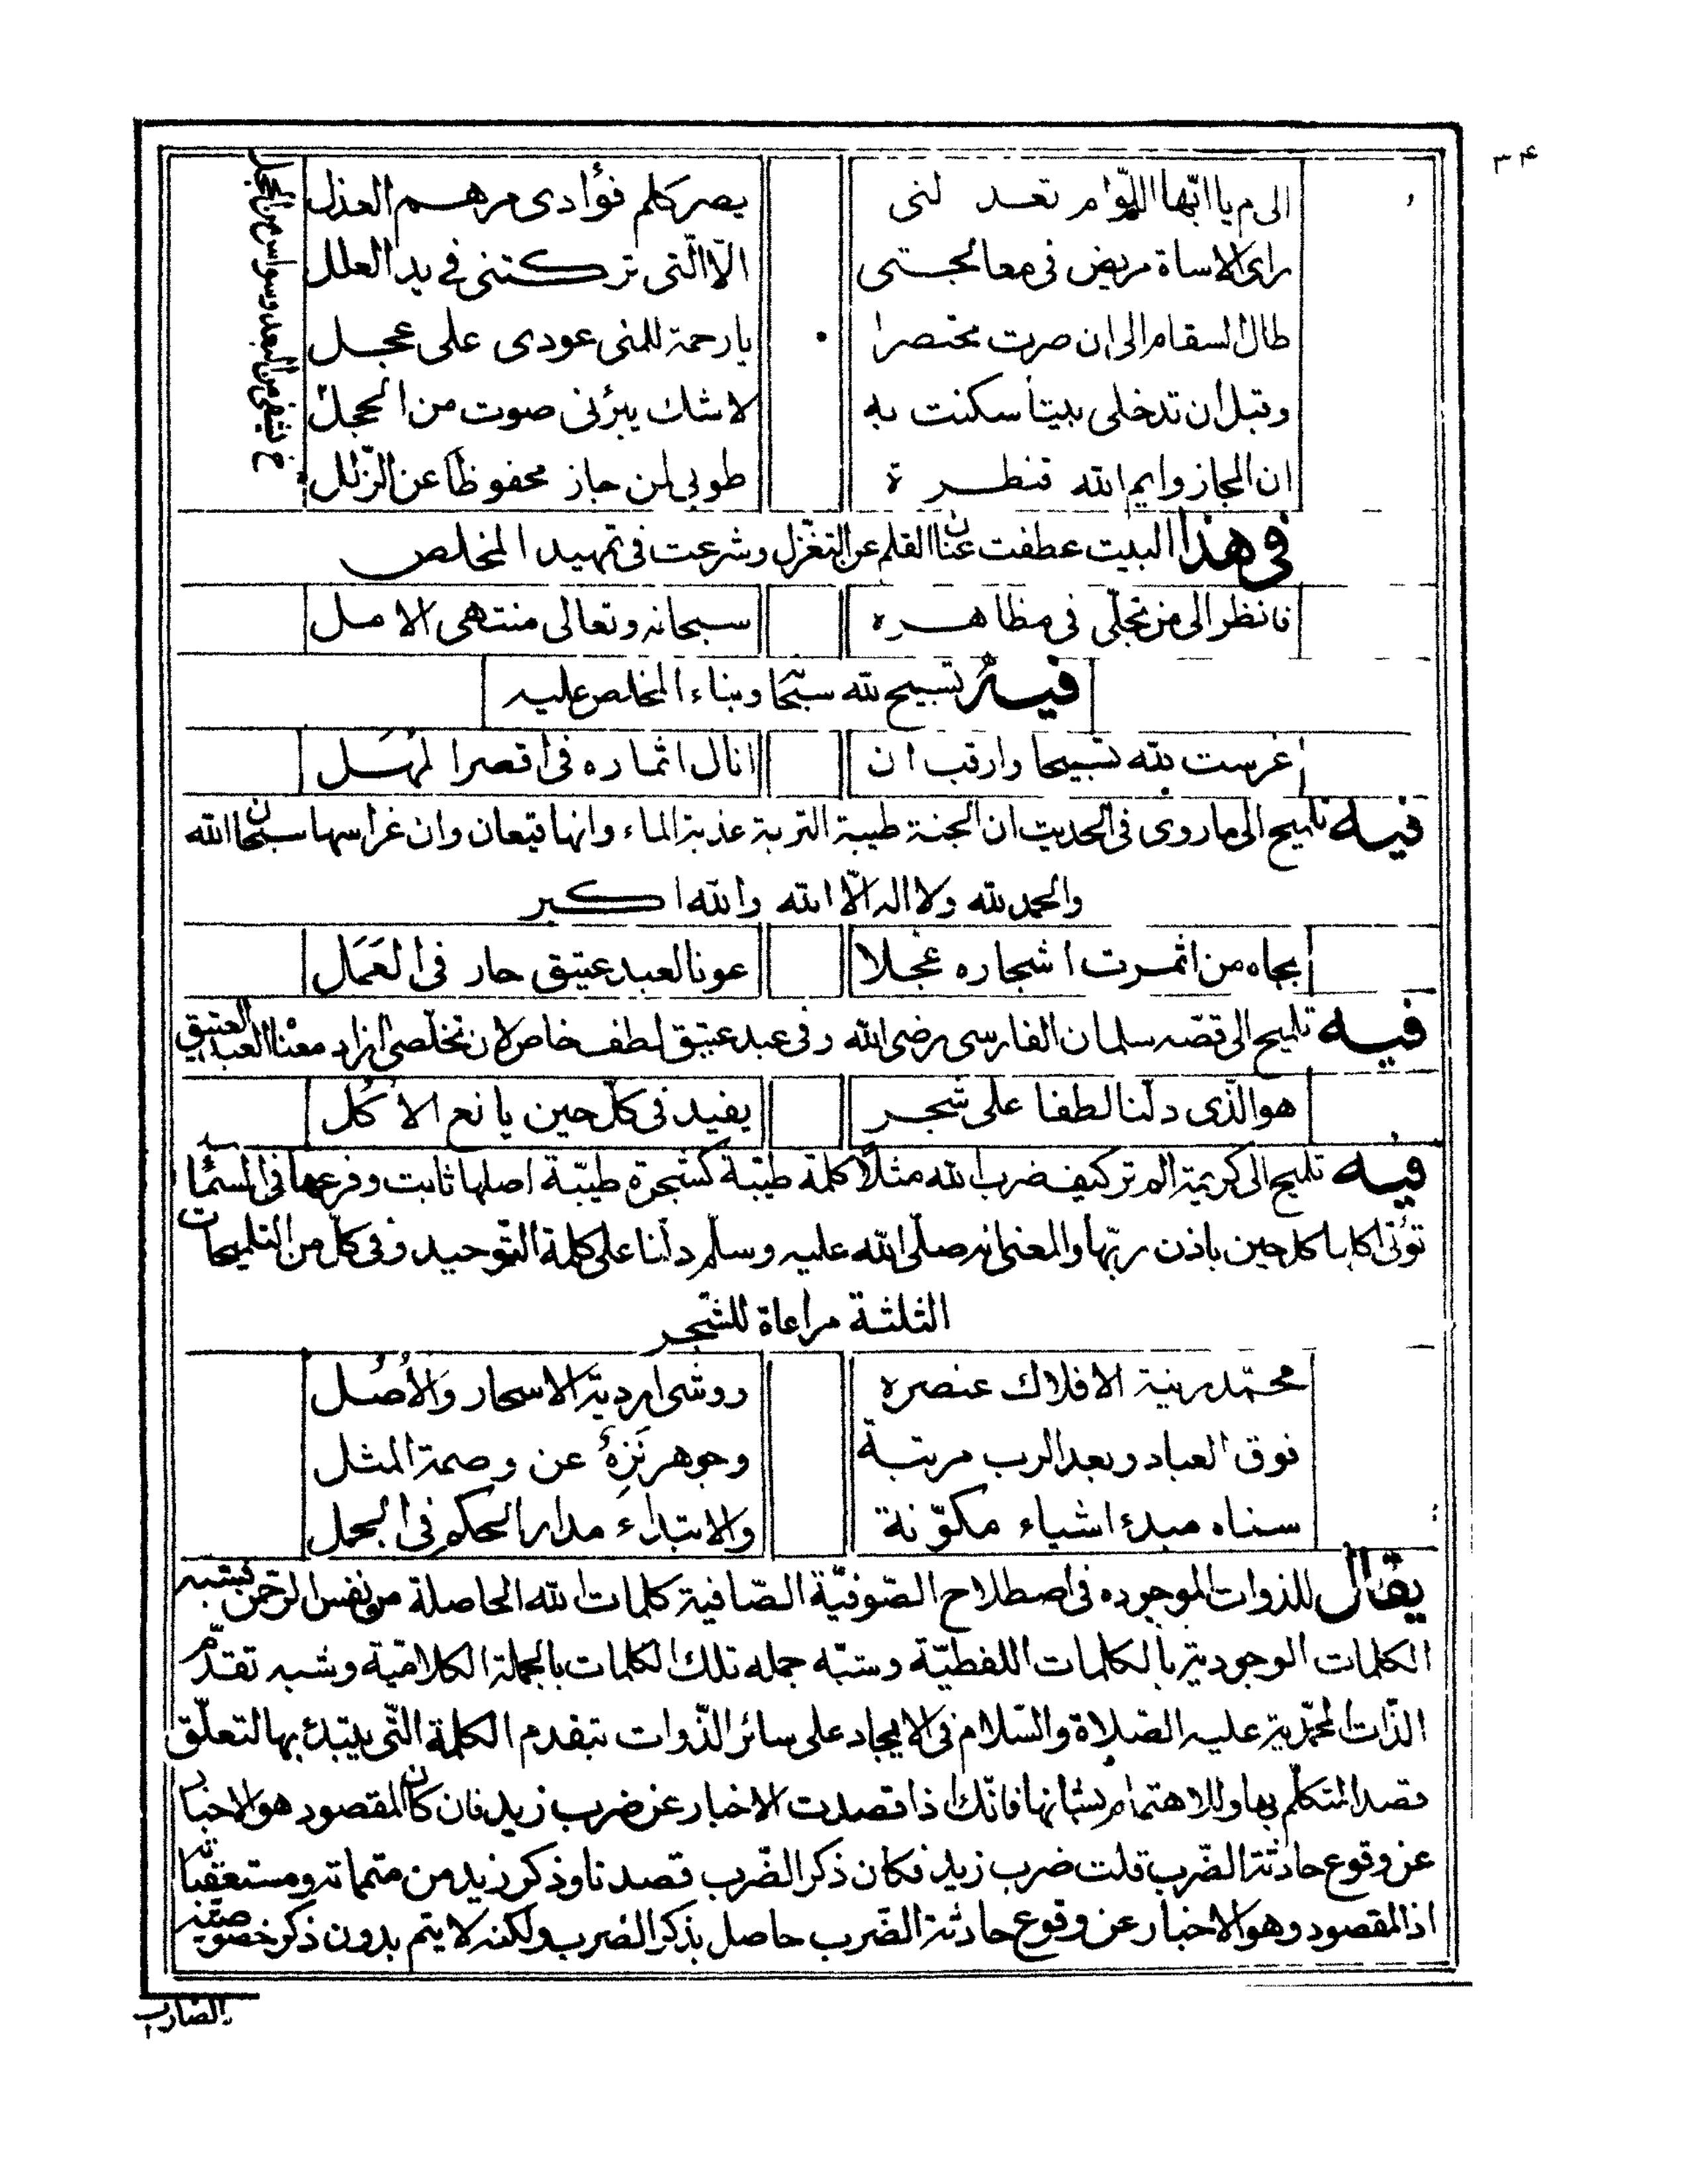 ٣٤
الى م يا ايّها اللوّام تعذلنى يصر كلم فؤادى مرهم العذل
راى الاساة مريض فى معالجتى الّا الّتى تركتنى فى يد العلل
طال السقام الى ان صرت مختصرا يا رحمة للمنى عودى على عجل
وقبل ان تدخلى بيتا سكنت به لا شك يبرئنى صوت من الحجل
ان المجاز وايم الله قنطرة طوبى لمن جاز محفوظا عن الزّلل
فى هذا البيت عطفت عنان القلم عن التغزّل وشرعت فى تمهيد المخلص
فانظر الى من تجلّى فى مظاهره سبحانه وتعالى منتهى الامل
فيه تسبيح لله سبحانه وبناء المخلص عليه
غرست لله تسبيحا وارقب ان انال اثماره فى اقصر المَهَل
فيه تلميح الى ما روى فى الحديث ان الجنة طيبة التربة عذبة الماء وانها قيعان وان غراسها سبحان الله
والحمد لله ولا اله الّا الله والله اكبر
بجاه من اثمرت اشجاره عجلا عونا لعبد عتيق حار فى العَمَل
فيه تلميح الى قصّه سلمان الفارسى رضى الله وفى عبد عتيق لطف خاص لان تخلّصى ازاد معناه العبد العتيق
هو الّذى دلّنا لطفا على شجر يفيد فى كلّ حين يانع الاُكُل
فيه تلميح الى كريمة الم تر كيف ضرب الله مثلاً كلمة طيّبة كشجرة طيّبة اصلها ثابت وفرعها فى السّماء
تؤتى اكلها كل حين باذن ربّها والمعنى انه صلّى الله عليه وسلّم دلّنا على كلمة التّوحيد وفى كلّ من التلميحات
الثلثة مراعاة للشّجر
محمّد زينة الافلاك عنصره ووشى اردية الاسحار والاُصُل
فوق العباد وبعد الرب مرتبة وجوهر نَزِهٌ عن وصمة المثل
سناه مبدء اشياء مكوّنة والابتداء مدار الحكم فى الجمل
يقال للذوات الموجوده فى اصطلاح الصّوفيّة الصّافية كلمات الله الحاصلة من نفس الرّحمن فشبه
الكلمات الوجودية بالكلمات اللفظيّة وشبّه جمله تلك الكلمات بالجملة الكلاميّة وشبه تقدّم
الذّات المحمّدية عليه الصّلاة والسّلام فى الايجاد على سائر الذّوات بتقدم الكلمة الّتى يبتدء بها لتعلّق
قصد المتكلّم بها وللاهتمام بشانها فانّك اذا قصدت الاخبار عن ضرب زيد فان كان المقصود هو الاخبار
عن وقوع حادثة الضّرب قلت ضرب زيد فكان ذكر الضّرب قصدنا وذكر زيد من متمماته ومستعقباته
اذ المقصود وهو الاخبار عن وقوع حادثة الضّرب حاصل بذكر الضرب ولكنه لا يتم بدون ذكر خصوصيّة
الضارب